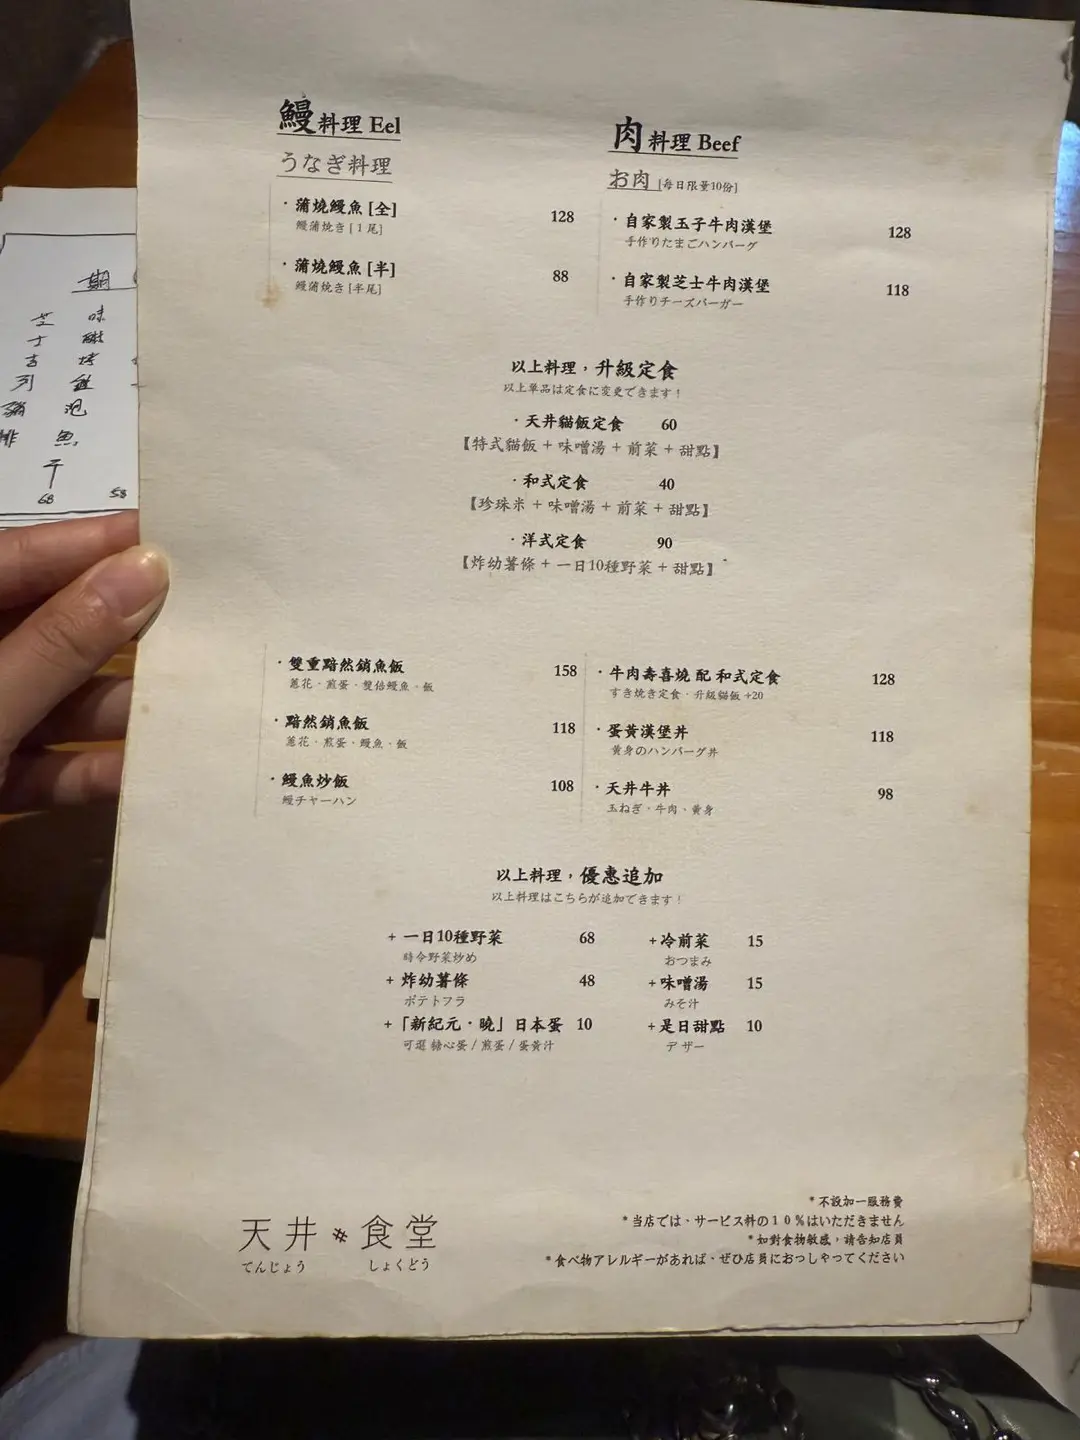 鰻料理 Eel
うなぎ料理
・蒲燒鰻魚 [全] 128
鰻蒲焼き [1尾]
・蒲燒鰻魚 [半] 88
鰻蒲焼き [半尾]
肉料理 Beef
お肉 [每日限量10份]
・自家製玉子牛肉漢堡 128
手作りたまごハンバーグ
・自家製芝士牛肉漢堡 118
手作りチーズバーガー
以上料理，升級定食
以上単品は定食に変更できます！
・天井貓飯定食 60
【特式貓飯 + 味噌湯 + 前菜 + 甜點】
・和式定食 40
【珍珠米 + 味噌湯 + 前菜 + 甜點】
・洋式定食 90
【炸幼薯條 + 一日10種野菜 + 甜點】
・雙重黯然銷魚飯 158
蔥花・煎蛋・雙倍鰻魚・飯
・黯然銷魚飯 118
蔥花・煎蛋・鰻魚・飯
・鰻魚炒飯 108
鰻チャーハン
・牛肉壽喜燒 配 和式定食 128
すき焼き定食・升級貓飯 +20
・蛋黃漢堡丼 118
黄身のハンバーグ丼
・天井牛丼 98
玉ねぎ・牛肉・黄身
以上料理，優惠追加
以上料理はこちらが追加できます！
+ 一日10種野菜 68
時令野菜炒め
+ 炸幼薯條 48
ポテトフラ
+「新紀元・曉」日本蛋 10
可選 糖心蛋 / 煎蛋 / 蛋黃汁
+冷前菜 15
おつまみ
+味噌湯 15
みそ汁
+是日甜點 10
デザー
天井 食堂
てんじょう しょくどう
*不設加一服務費
*当店では、サービス料の１０％はいただきません
*如對食物敏感，請告知店員
*食べ物アレルギーがあれば、ぜひ店員におっしゃってください
期
味
芝士
吉列
魚干
68
58